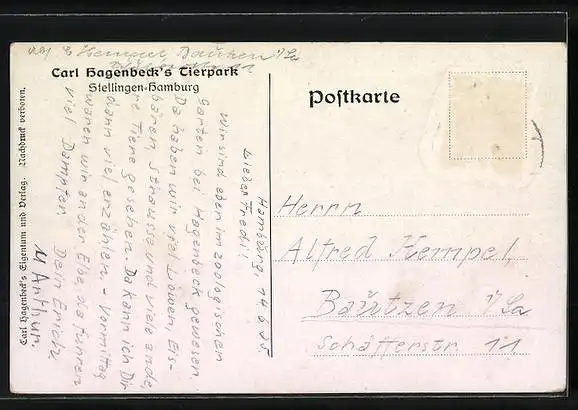 Abs E. Hempel Bautzen i/Sa
Carl Hagenbeck's Tierpark
Stellingen-Hamburg
Postkarte
Carl Hagenbeck's Eigentum und Verlag. Nachdruck verboten.
Hamburg, 14.6.25
Lieber Fredi!
Wir sind eben im zoologischen
Garten bei Hagenbeck gewesen.
Da haben wir viel Löwen, Eis-
bären, Strausse und viele ande,
re Tiere gesehen. Da kann ich Dir
dann viel erzählen. Vormittag
waren wir an der Elbe da fuhren
viel Dampfer. Dein Erich
u Arthur.
Herrn
Alfred Hempel,
Bautzen i/Sa
Schäfferstr. 11